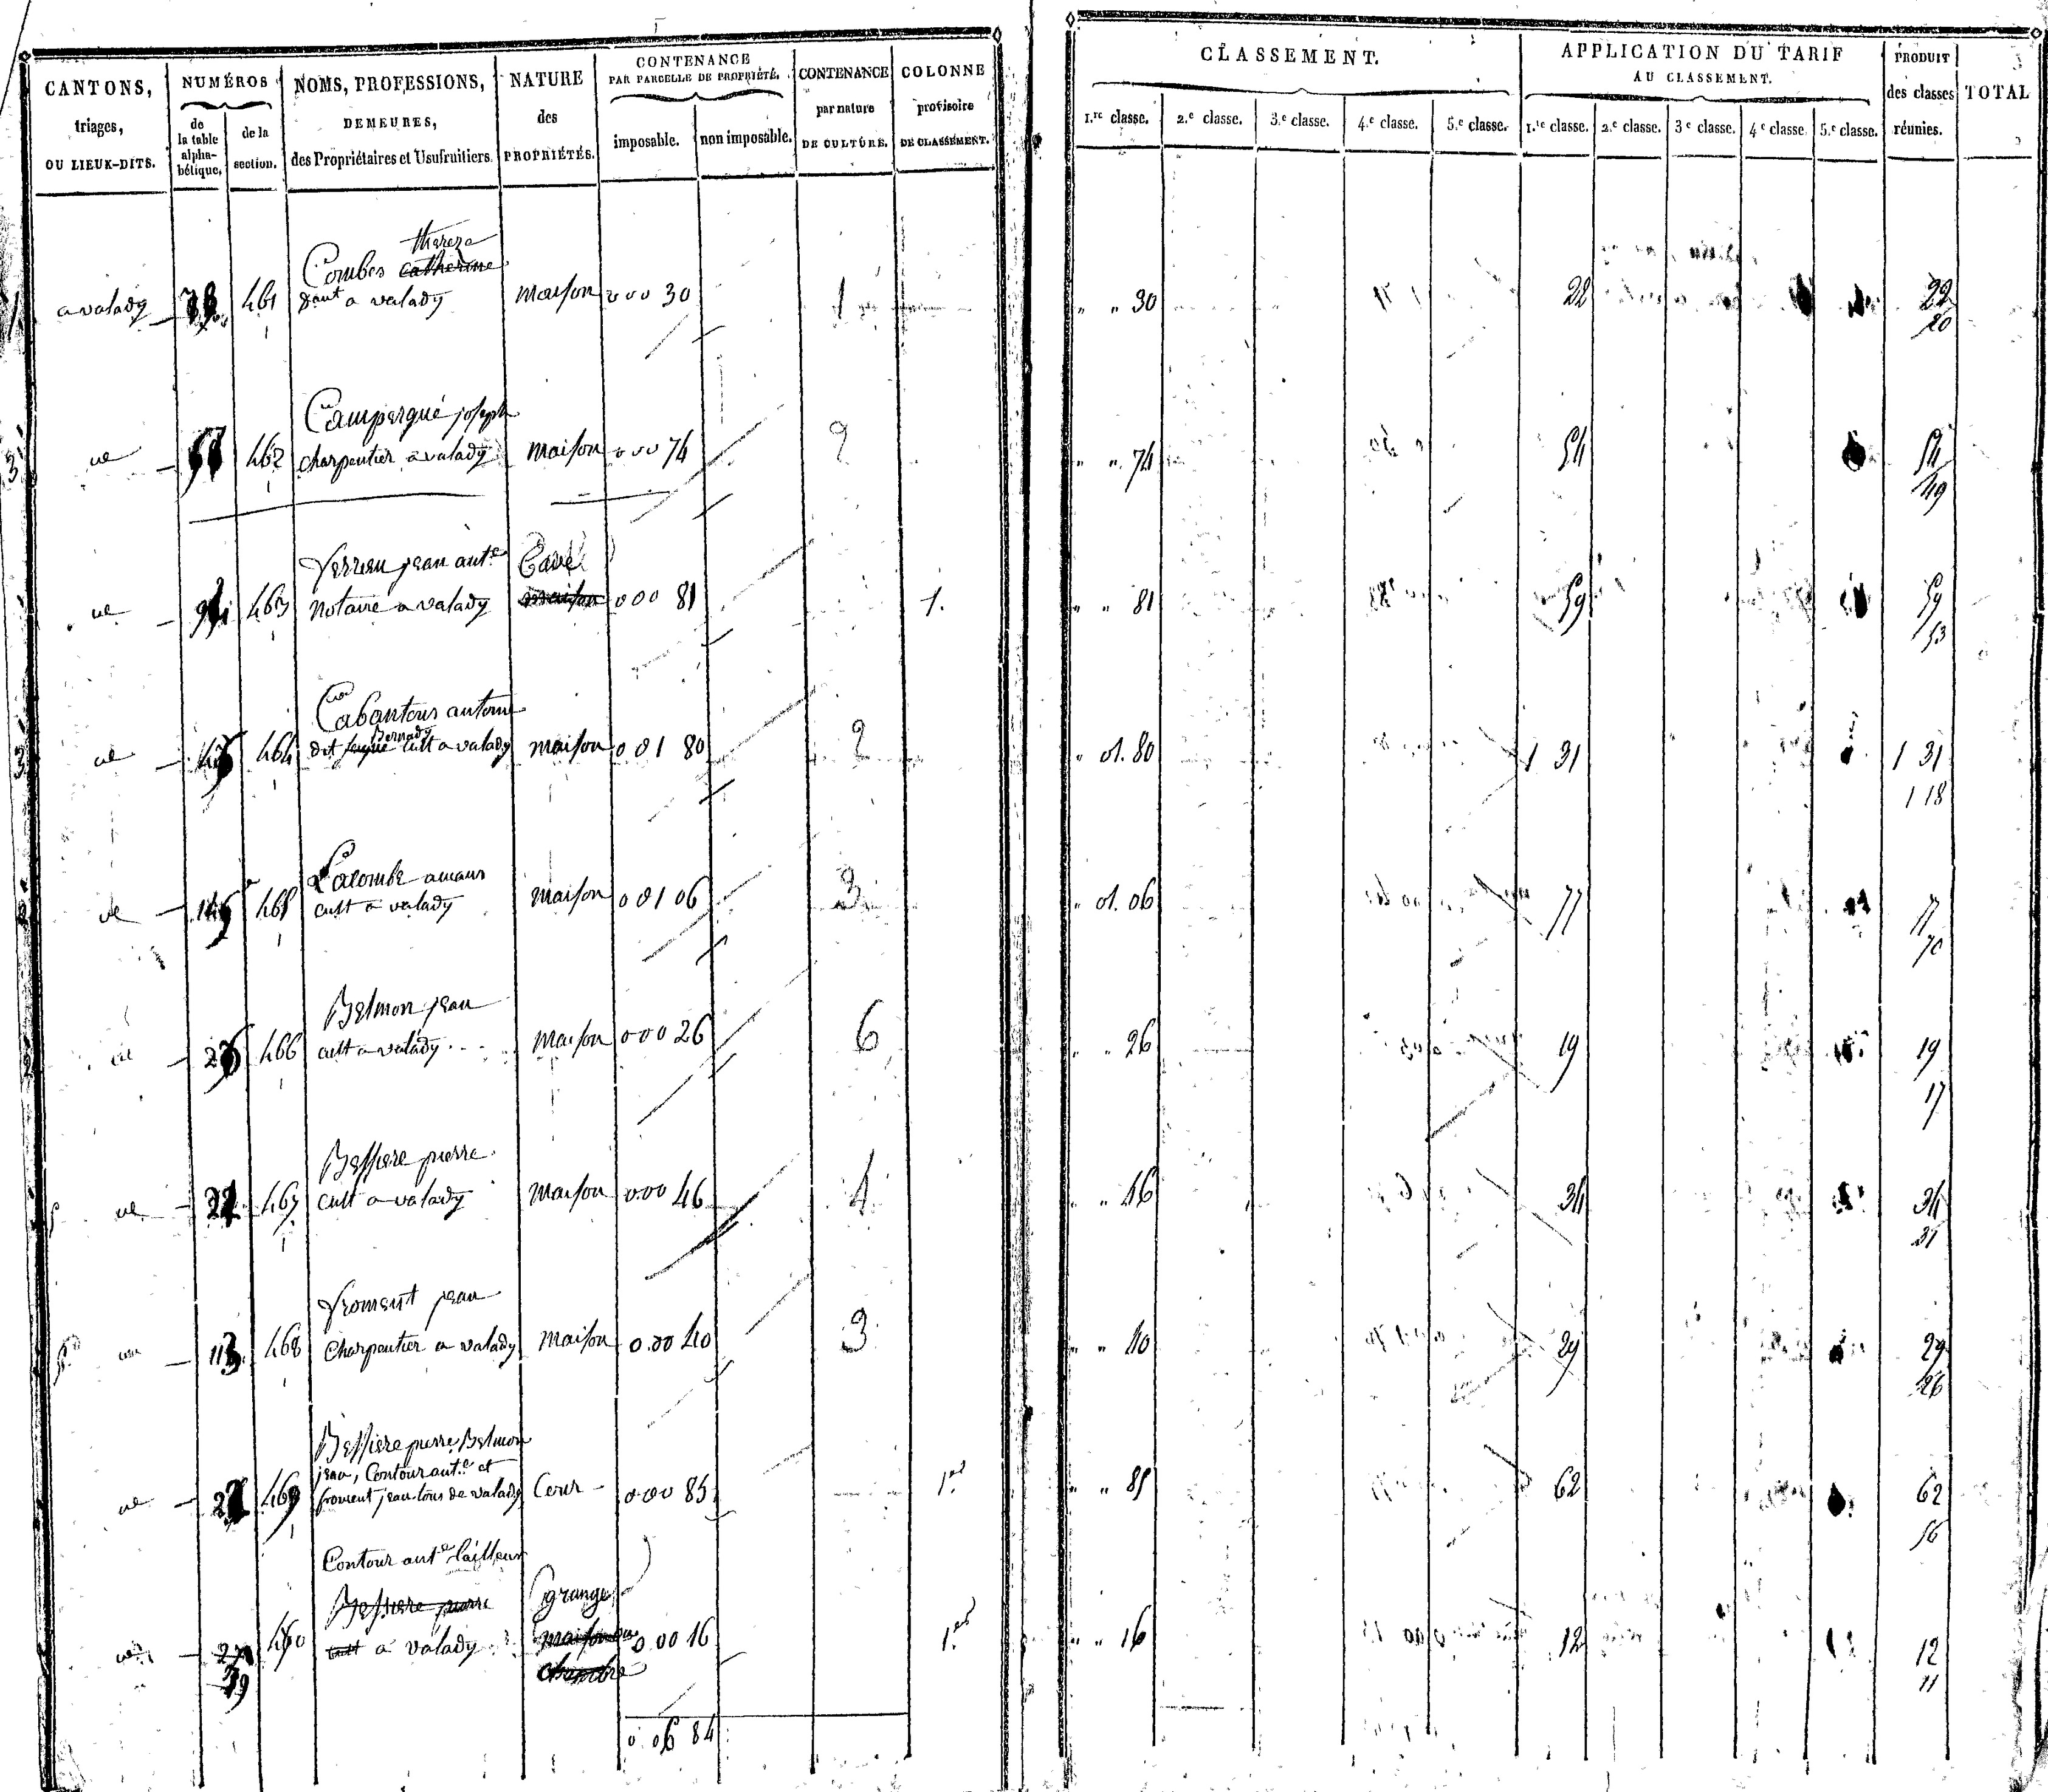 CANTONS,
triages,
OU LIEUX-DITS.
NUMÉROS
de
la table
alpha-
bétique.
de la
section.
NOMS, PROFESSIONS,
DEMEURES,
des Propriétaires et Usufruitiers.
NATURE
des
PROPRIÉTÉS.
CONTENANCE
PAR PARCELLE DE PROPRIÉTÉ.
imposable.
non imposable.
CONTENANCE
par nature
DE CULTURE.
COLONNE
provisoire
DE CLASSEMENT.
CLASSEMENT.
1.re classe. 2.e classe. 3.e classe. 4.e classe. 5.e classe.
APPLICATION DU TARIF
AU CLASSEMENT.
1.re classe. 2.e classe. 3e classe. 4e classe. 5.e classe.
PRODUIT
des classes
réunies.
TOTAL
thereze
Combes catherine
a valady 461 a valady maison 000 30 1 " " 30 22 22
20
Campergué joseph
462 charpentier a valady maison 000 74 2 " " 74 54 54
49
Verrieu jean ant.e Cave
463 notaire a valady maison 000 81 1. " " 81 59 59
53
Cabantous antoine
Bernady
464 dit cult a valady maison 001 80 2 " 01.80 1 31 1 31
1 18
Lacombe amans
465 cult a valady maison 001 06 3 " 01.06 77 77
70
Belmon jean
466 cult a valady maison 000 26 6 " " 26 19 19
17
Bessiere pierre
467 cult a valady maison 000 46 4 " " 46 34 34
31
froment jean
113 468 charpentier a valady maison 0.00 40 3 " " 40 29 29
26
Bessiere pierre, Belmon
jean, Contour ant.e et
469 froment jean tous de valady Cour 0.00 85 1.er " " 85 62 62
56
Contour ant.e tailleur
Bessiere pierre grange
cult a valady maison 0.00 16 1.er " " 16 12 12
chambre
11
0 06 84